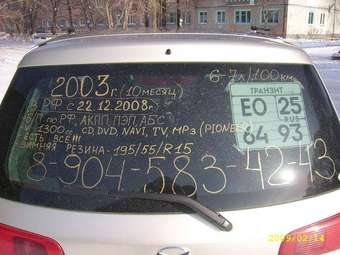 2003г. (10 месяц)
6-7л/100км
В РФ с 22.12.2008г.
Б/П по РФ, АКПП, ПЭП, АБС
V 1300 CD, DVD, NAVI, TV, MP3 (PIONEER)
ЕСТЬ ВСЁ!!!
ЗИМНЯЯ РЕЗИНА - 195/55/R15
8-904-583-42-43
ТРАНЗИТ
ЕО 25
RUS
64 93
2009/02/14